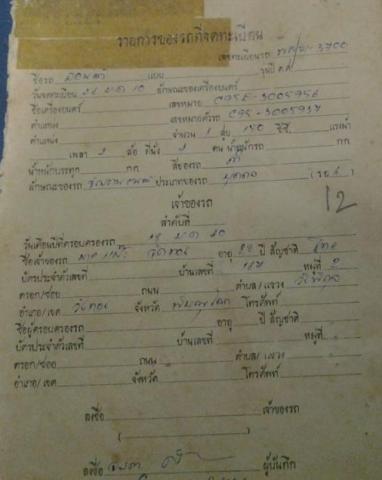 รายการของรถที่จดทะเบียน
เลขทะเบียนรถ 3700
ชื่อรถ ฮอนด้า แบบ รุ่นปี ค.ศ.
วันจดทะเบียน ลักษณะของเครื่องยนต์
ชื่อเครื่องยนต์ เลขหมาย C95E-3005956
ตำแหน่ง เลขหมายตัวรถ C95-3005937
ตำแหน่ง จำนวน 1 สูบ 150 ซีซี แรงม้า
เพลา 2 ล้อ ที่นั่ง 2 คน น้ำหนักรถ กก
น้ำหนักบรรทุก กก สีของรถ ดำ
ลักษณะของรถ ประเภทของรถ บุคคล
12
เจ้าของรถ
ลำดับที่
วันเดือนปีที่ครอบครองรถ
ชื่อเจ้าของรถ อายุ ปี สัญชาติ ไทย
บัตรประจำตัวเลขที่ บ้านเลขที่ หมู่ที่
ตรอก/ซอย ถนน ตำบล/แขวง
อำเภอ/เขต วังทอง จังหวัด พิษณุโลก โทรศัพท์
ชื่อผู้ครอบครองรถ อายุ ปี สัญชาติ
บัตรประจำตัวเลขที่ บ้านเลขที่ หมู่ที่
ตรอก/ซอย ถนน ตำบล/แขวง
อำเภอ/เขต จังหวัด โทรศัพท์
ลงชื่อ เจ้าของรถ
( )
ลงชื่อ ผู้บันทึก